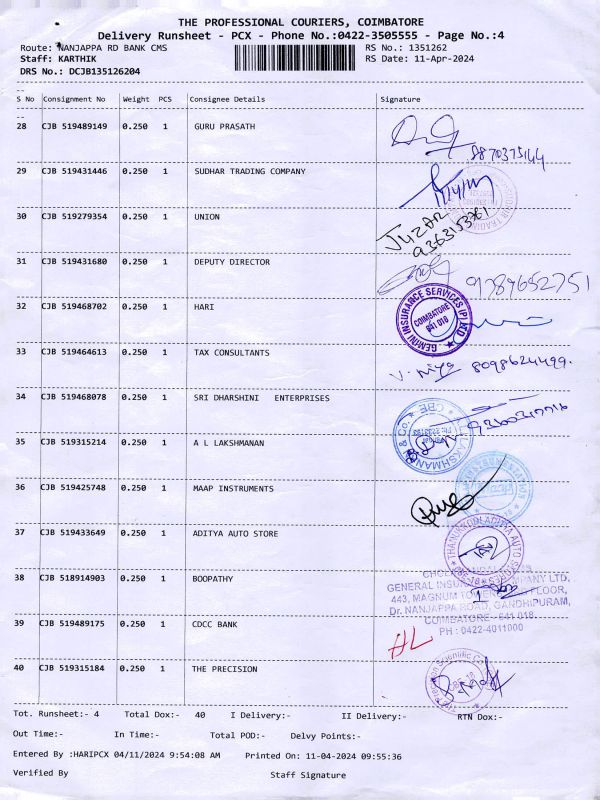 THE PROFESSIONAL COURIERS, COIMBATORE
Delivery Runsheet - PCX - Phone No.:0422-3505555 - Page No.:4
Route: NANJAPPA RD BANK CMS RS No.: 1351262
Staff: KARTHIK RS Date: 11-Apr-2024
DRS No.: DCJB135126204
S No Consignment No Weight PCS Consignee Details Signature
28 CJB 519489149 0.250 1 GURU PRASATH
29 CJB 519431446 0.250 1 SUDHAR TRADING COMPANY
30 CJB 519279354 0.250 1 UNION
31 CJB 519431680 0.250 1 DEPUTY DIRECTOR
9789652751
32 CJB 519468702 0.250 1 HARI
GEMINI INSURANCE SERVICES (P) LTD
COIMBATORE
641 018
33 CJB 519464613 0.250 1 TAX CONSULTANTS
8098624499.
34 CJB 519468078 0.250 1 SRI DHARSHINI ENTERPRISES
35 CJB 519315214 0.250 1 A L LAKSHMANAN
36 CJB 519425748 0.250 1 MAAP INSTRUMENTS
37 CJB 519433649 0.250 1 ADITYA AUTO STORE
38 CJB 518914903 0.250 1 BOOPATHY
GENERAL INSURANCE COMPANY LTD,
443, MAGNUM TOWER FLOOR,
Dr. NANJAPPA ROAD, GANDHIPURAM,
COIMBATORE - 641 018
PH : 0422-4011000
39 CJB 519489175 0.250 1 CDCC BANK
40 CJB 519315184 0.250 1 THE PRECISION
Tot. Runsheet:- 4 Total Dox:- 40 I Delivery:- II Delivery:- RTN Dox:-
Out Time:- In Time:- Total POD:- Delvy Points:-
Entered By :HARIPCX 04/11/2024 9:54:08 AM Printed On: 11-04-2024 09:55:36
Verified By Staff Signature